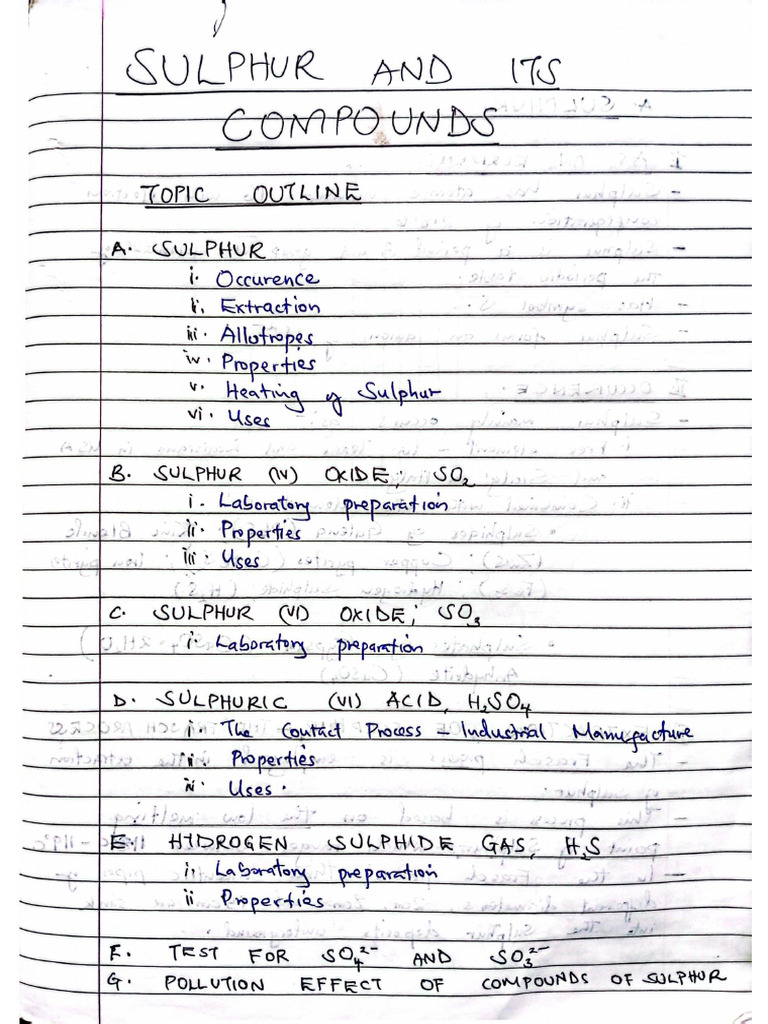 SULPHUR AND ITS
COMPOUNDS
TOPIC OUTLINE
A. SULPHUR
i. Occurence
ii. Extraction
iii. Allotropes
iv. Properties
v. Heating of Sulphur
vi. Uses
B. SULPHUR (IV) OXIDE; SO₂
i. Laboratory preparation.
ii. Properties
iii. Uses
C. SULPHUR (VI) OXIDE; SO₃
i. Laboratory preparation
D. SULPHURIC (VI) ACID, H₂SO₄
i. The Contact Process – Industrial Manufacture
ii. Properties
iii. Uses.
E. HYDROGEN SULPHIDE GAS, H₂S
i. Laboratory preparation
ii Properties
F. TEST FOR SO₄²⁻ AND SO₃²⁻
G. POLLUTION EFFECT OF COMPOUNDS OF SULPHUR